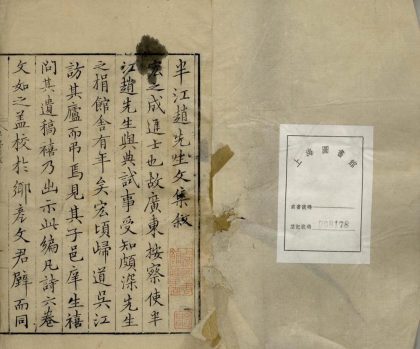 半江趙先生文集叙
宏之成進士也故廣東按察使半
江趙先生與典試事受知頗深先生
之捐館舍有年矣宏頃歸道吳江
訪其廬而吊焉見其子邑庠生禧
問其遺稿禧乃出示此編凡詩六卷
文如之蓋校於鄉彥文君壁而同
上海圖書館